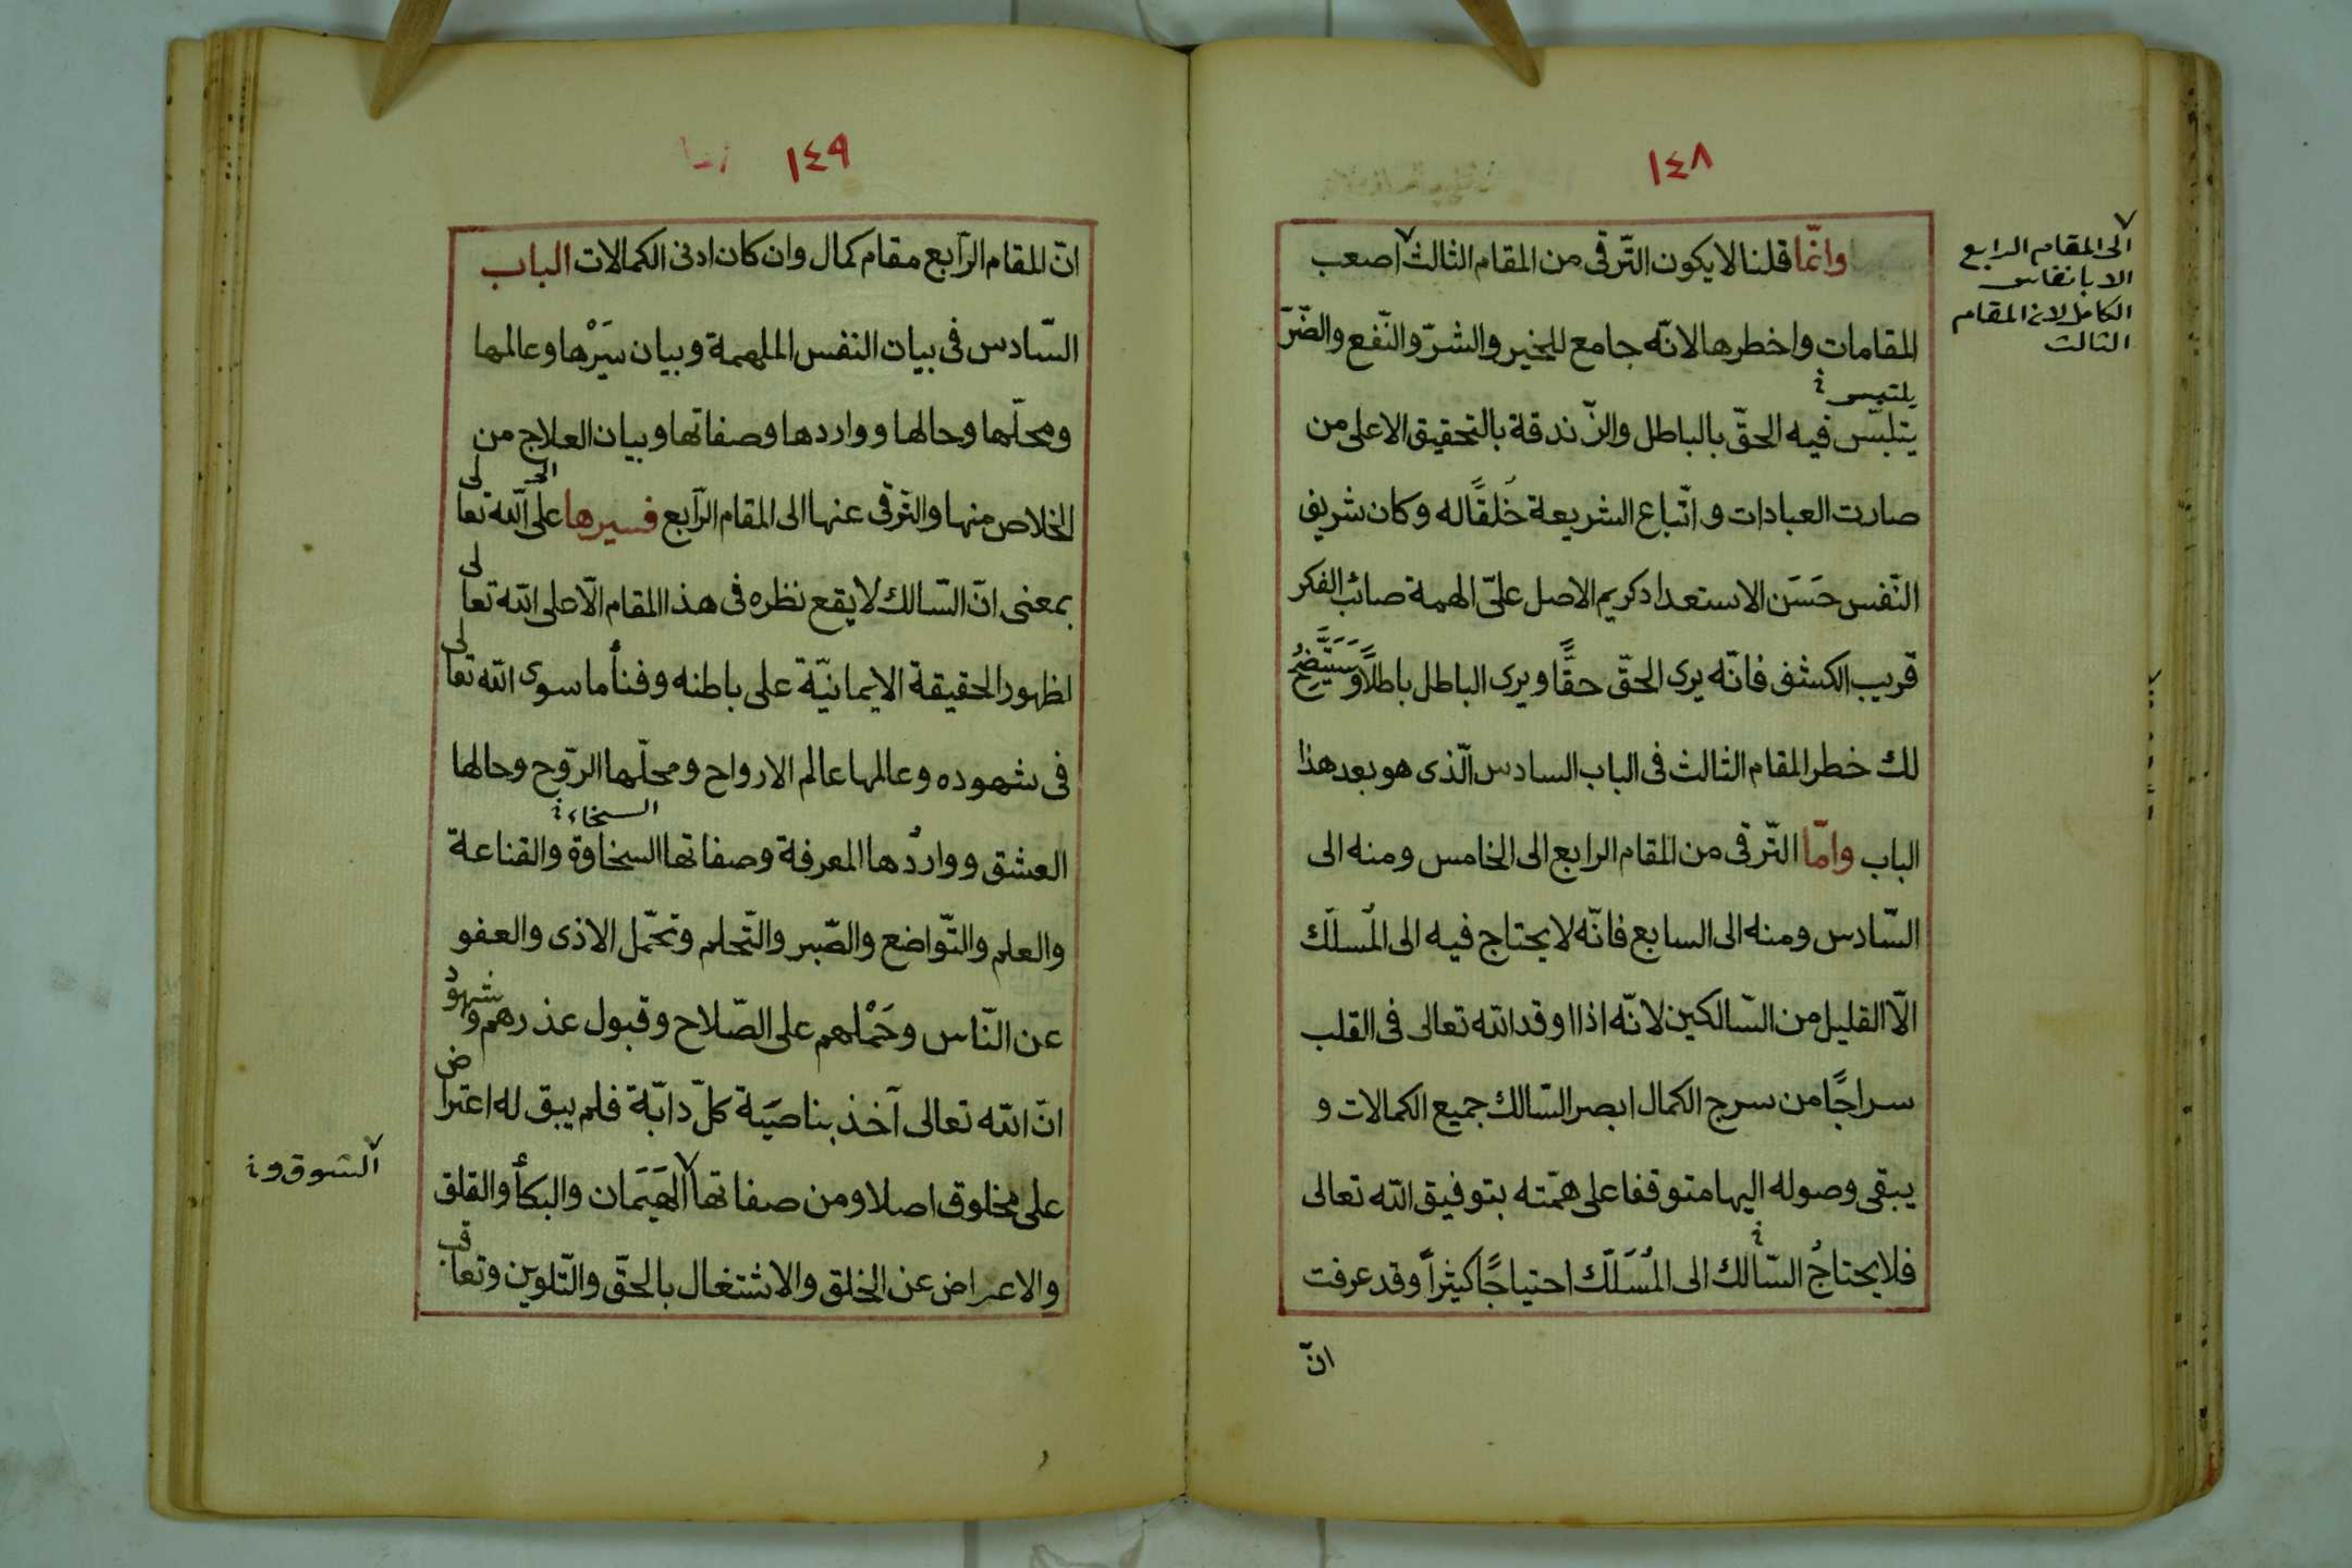 ١٤٨
وانّما قلنا لا يكون التّرقى من المقام الثالث اصعب
المقامات واخطرها لانّه جامع للخير والشرّ والنّفع والضّرّ
يلتبس
يتلبّس فيه الحقّ بالباطل والزّندقة بالتحقيق الا على من
صارت العبادات و اتّباع الشريعة خلقًا له وكان شريف
النّفس حَسَن الاستعداد كريم الاصل علىّ الهمة صائب الفكر
قريب الكشف فانّه يرى الحقّ حقًّا ويرى الباطل باطلًا وَسَيَتَّضِحُ
لك خطر المقام الثالث فى الباب السادس الّذى هو بعد هذا
الباب وامّا التّرقى من المقام الرابع الى الخامس ومنه الى
السّادس ومنه الى السابع فانّه لا يحتاج فيه الى المُسلّك
الّا القليل من السّالكين لانّه اذا اوقد الله تعالى فى القلب
سراجًا من سرج الكمال ابصر السّالك جميع الكمالات و
يبقى وصوله اليها متوقفا على همّته بتوفيق الله تعالى
فلا يحتاجُ السّالك الى المُسَلّك احتياجًا كثيرًا وقد عرفت
انّ
الى المقام الرابع
الا بانفاس
الكامل لان المقام
الثالث
١٤٩
انّ المقام الرّابع مقام كمال وان كان ادنى الكمالات الباب
السّادس فى بيات النفس الملهمة وبيان سَيْرها وعالمها
ومحلّها وحالها وواردها وصفاتها وبيان العلاج من
الى
الخلاص منها والتّرقى عنها الى المقام الرّابع فسيرها على الله تعالى
بمعنى انّ السّالك لا يقع نظره فى هذا المقام الّا على الله تعالى
لظهور الحقيقة الايمانيّة على باطنه وفنأ ما سوى الله تعالى
فى شهوده وعالمها عالم الارواح ومحلّها الرّوح وحالها
السخاء
العشق وواردُها المعرفة وصفاتها السخاوة والقناعة
والعلم والتّواضع والصّبر والتّحلم وتحمّل الاذى والعفو
عن النّاس وحَمْلهم على الصّلاح وقبول عذرهم وشهودُ
انّ الله تعالى آخذ بناصيَة كلّ دابّة فلم يبق له اعتراض
على مخلوق اصلا ومن صفاتها الهَيَمَان والبكأ والقلق
والاعراض عن الخلق والاشتغال بالحقّ والتّلوين وتعاقب
الشوق و